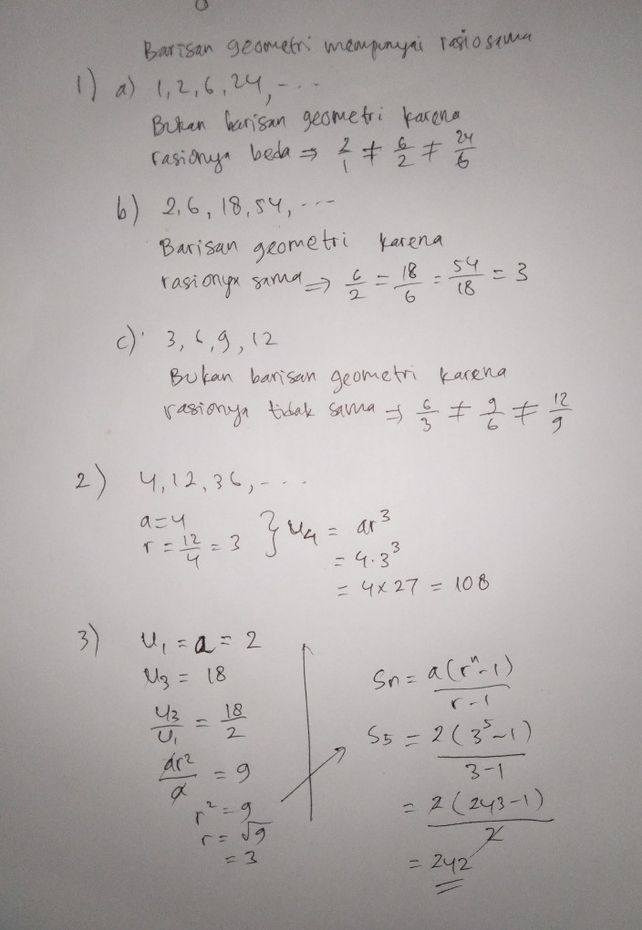 Barisan geometri mempunyai rasio sama
1) a) 1, 2, 6, 24, ...
Bukan barisan geometri karena
rasionya beda ⇒ 2/1 ≠ 6/2 ≠ 24/6
b) 2, 6, 18, 54, ...
Barisan geometri karena
rasionya sama ⇒ 6/2 = 18/6 = 54/18 = 3
c) 3, 6, 9, 12
Bukan barisan geometri karena
rasionya tidak sama ⇒ 6/3 ≠ 9/6 ≠ 12/9
2) 4, 12, 36, ...
a = 4
r = 12/4 = 3 } U₄ = ar³
= 4.3³
= 4 x 27 = 108
3) U₁ = a = 2
U₃ = 18
U₃/U₁ = 18/2
ar²/a = 9
r² = 9
r = √9
= 3
Sn = a(rⁿ-1)/r-1
S5 = 2(3⁵-1)/3-1
= 2(243-1)/2
= 242